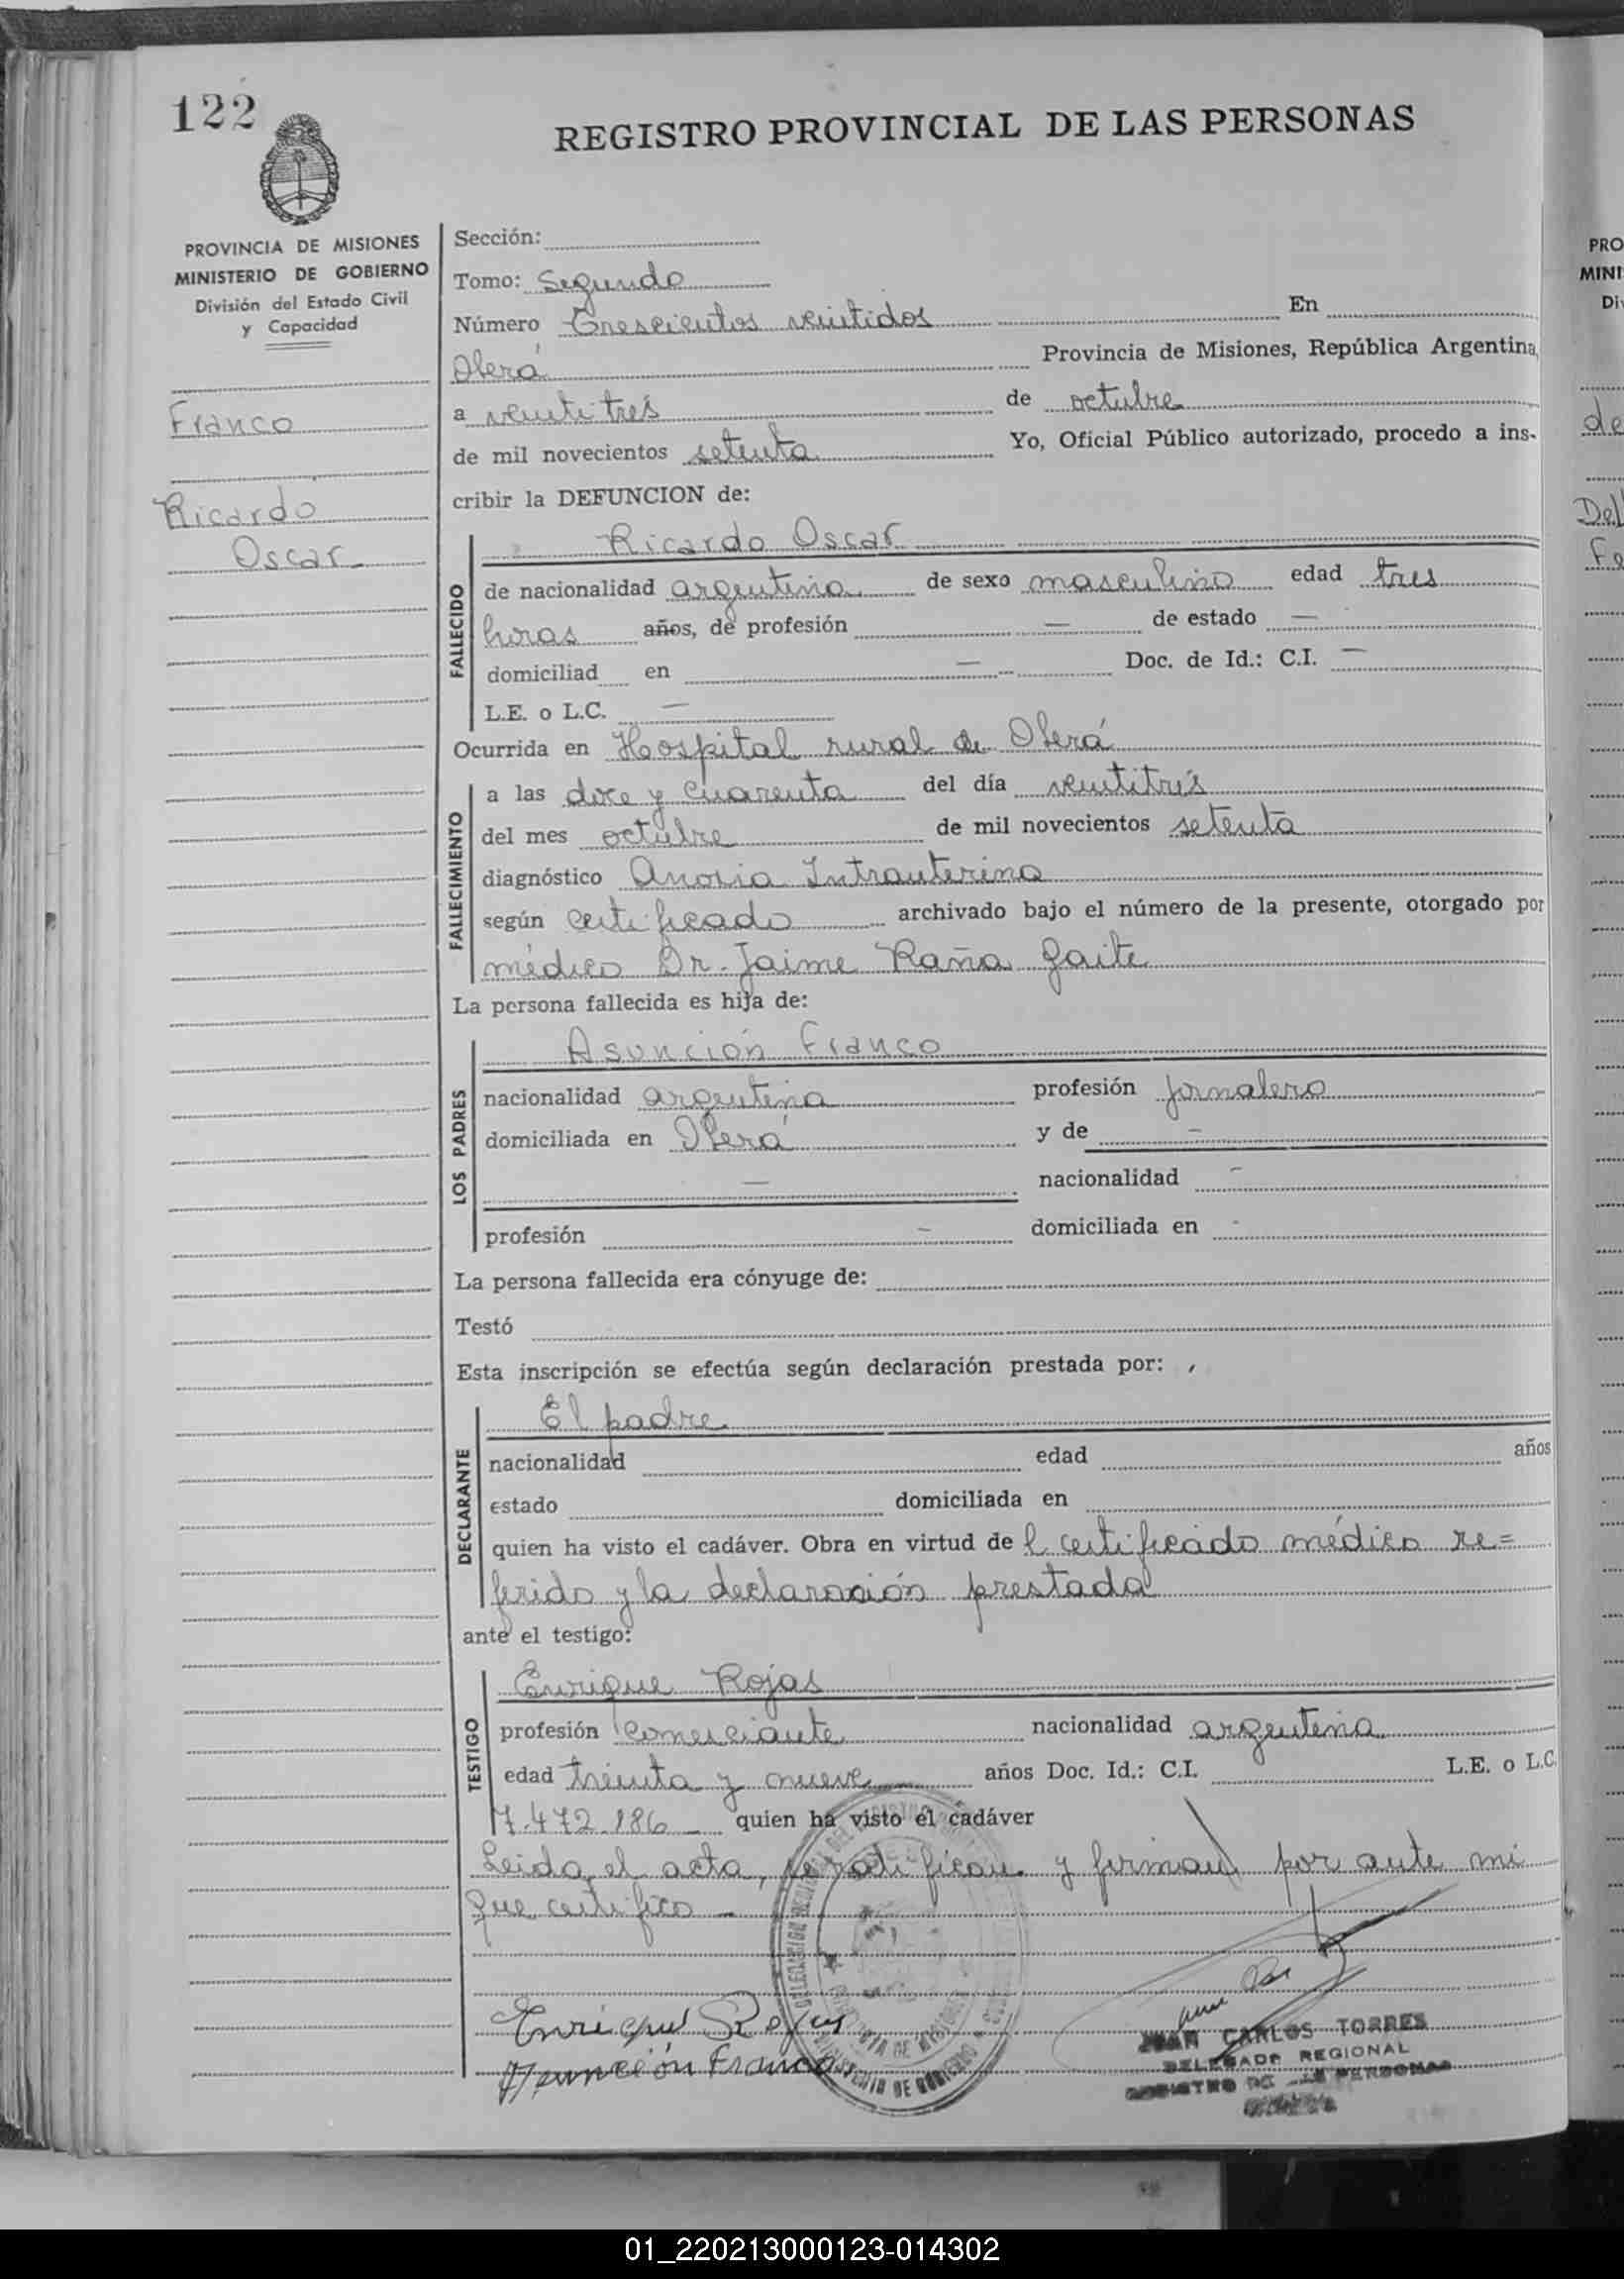 122
REGISTRO PROVINCIAL DE LAS PERSONAS
PROVINCIA DE MISIONES
MINISTERIO DE GOBIERNO
División del Estado Civil
y Capacidad
Franco
Ricardo
Oscar
Sección:
Tomo: Segundo
Número Trescientos veintidos En
Oberá Provincia de Misiones, República Argentina,
a veintitrés de octubre
de mil novecientos setenta Yo, Oficial Público autorizado, procedo a ins-
cribir la DEFUNCION de:
FALLECIDO
Ricardo Oscar
de nacionalidad argentina de sexo masculino edad tres
horas años, de profesión — de estado —
domiciliad en — Doc. de Id.: C.I. —
L.E. o L.C. —
Ocurrida en Hospital rural de Oberá
FALLECIMIENTO
a las doce y cuarenta del día veintitrés
del mes octubre de mil novecientos setenta
diagnóstico Anoxia Intrauterina
según certificado archivado bajo el número de la presente, otorgado por
médico Dr. Jaime Raña Gaite
La persona fallecida es hija de:
LOS PADRES
Asunción Franco
nacionalidad argentina profesión jornalero
domiciliada en Oberá y de —
— nacionalidad —
profesión — domiciliada en -
La persona fallecida era cónyuge de:
Testó
Esta inscripción se efectúa según declaración prestada por:
DECLARANTE
El padre
nacionalidad edad años
estado domiciliada en
quien ha visto el cadáver. Obra en virtud de l certificado médico re=
ferido y la declaración prestada
ante el testigo:
TESTIGO
Enrique Rojas
profesión Comerciante nacionalidad argentina
edad treinta y nueve años Doc. Id.: C.I. L.E. o L.C.
7.472.186 — quien ha visto el cadáver
Leida el acta, se ratifican y firman por ante mi
que certifico —
Enrique Rojas
Asunción Franco
JUAN CARLOS TORRES
DELEGADO REGIONAL
REGISTRO DE LAS PERSONAS
PRO
MINI
Di
de
Del
Fe
01_220213000123-014302